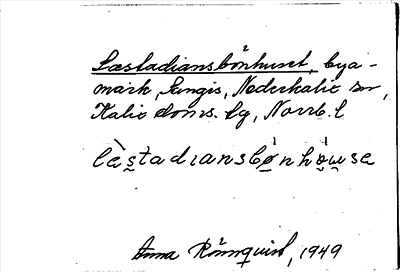 Læstadiansbönhuset, bya-
mark, Sangis, Nederkalix sn,
Kalix doms. lg, Norrb. l
lestadiansbönhowse
Anna Rönnquist, 1949